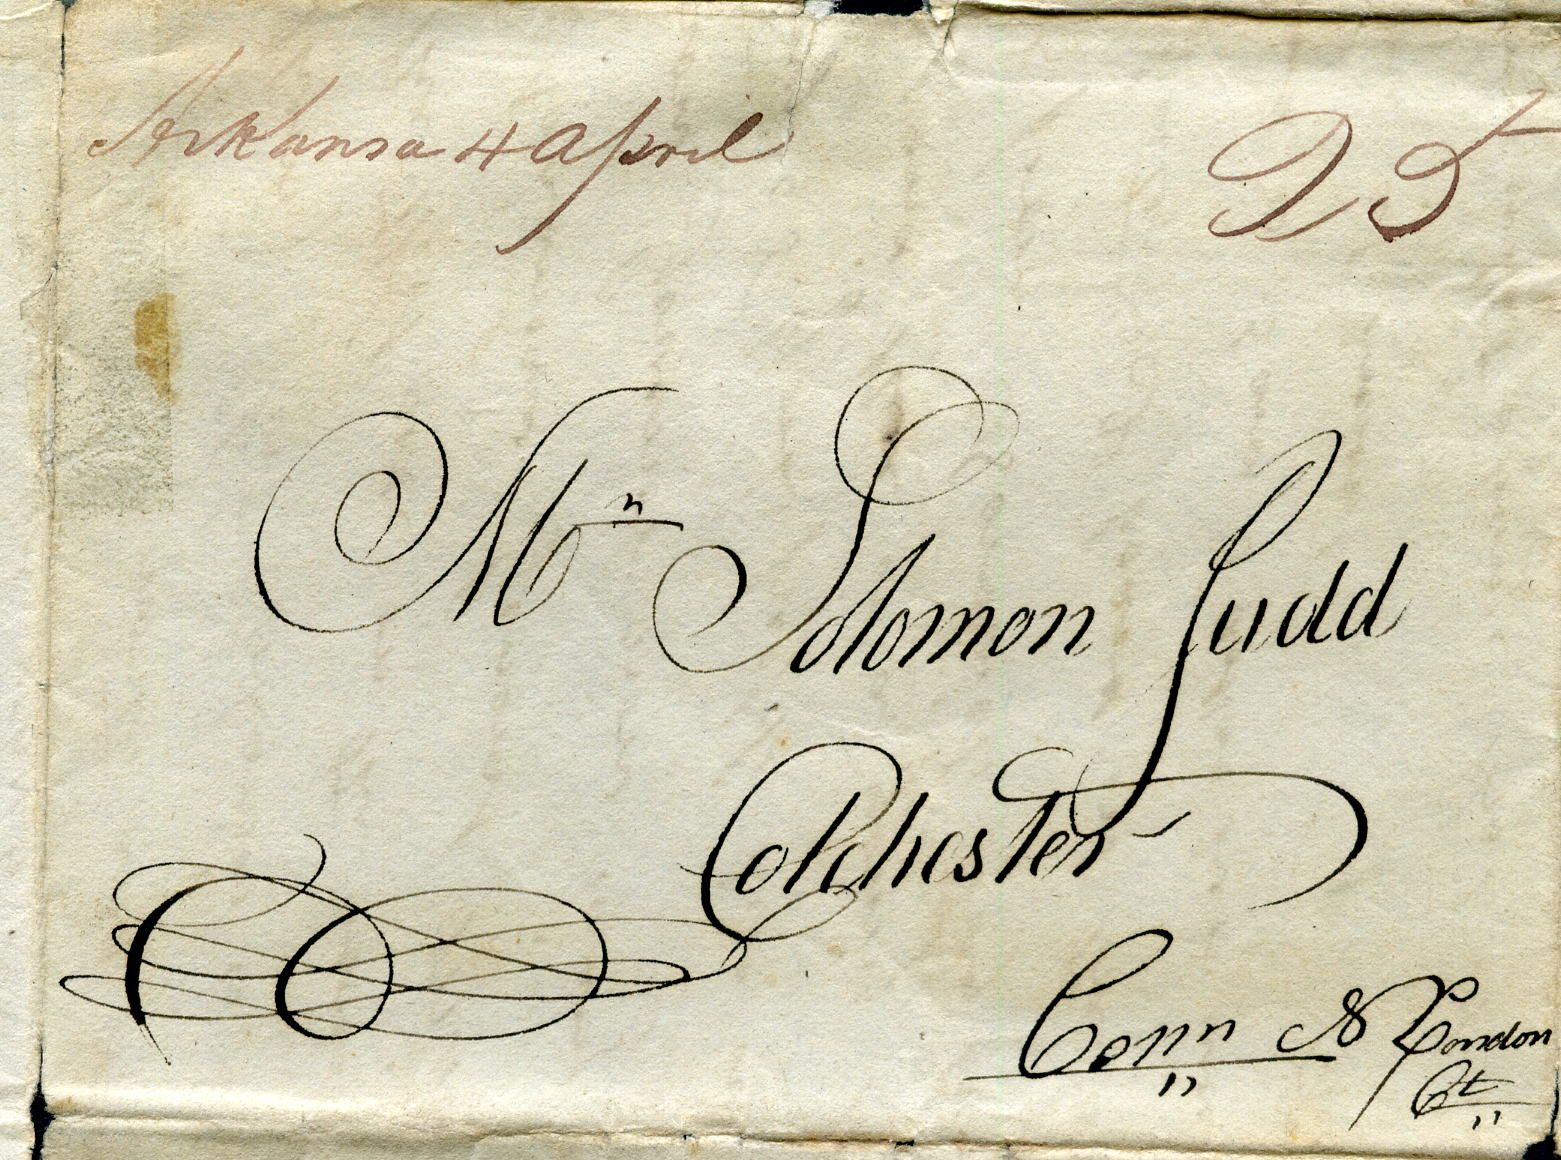 Arkansa 4 April 25
Mr Solomon Judd
Colchester
Conn N London
Ct